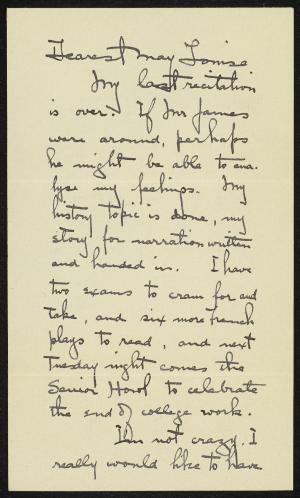 Dearest May Louise
My last recitation
is over. If Mr James
were around, perhaps
he might be able to ana-
lyse my feelings. My
history topic is done, my
story for narration written
and handed in. I have
two exams to cram for and
take, and six more French
plays to read, and next
Tuesday night comes the
Senior Howl to celebrate
the end of college work.
I'm not crazy. I
really would like to have